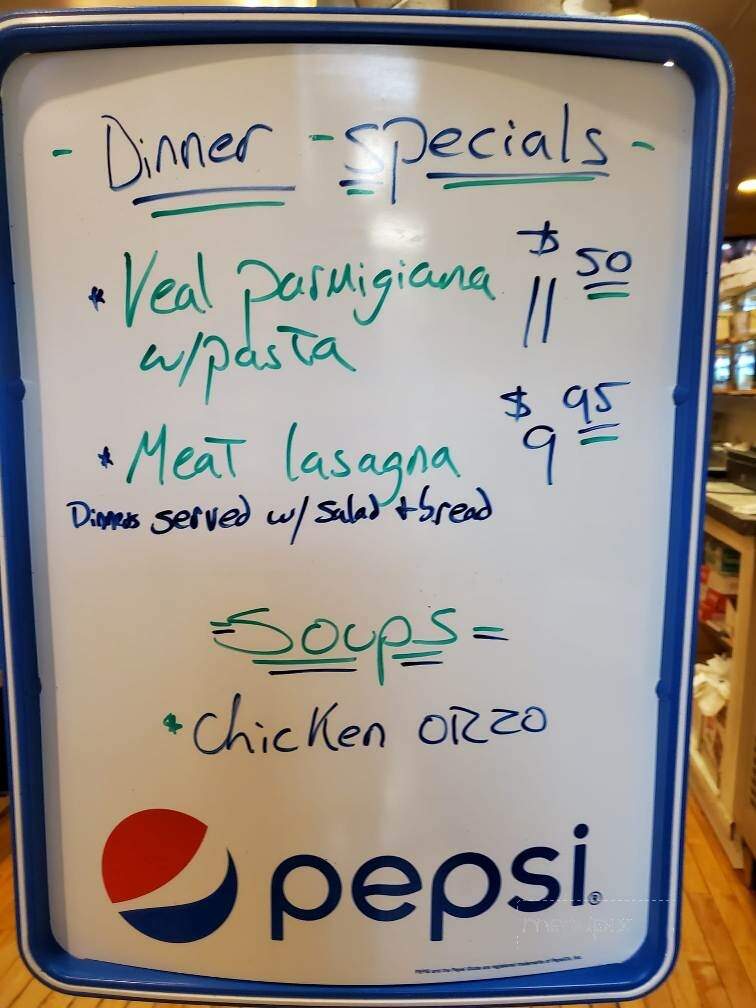 - Dinner - Specials -
* Veal parmigiana $11 50
w/pasta
* Meat lasagna $9 95
Dinners served w/ salad + bread
= Soups =
* Chicken orzo
pepsi®
menupix